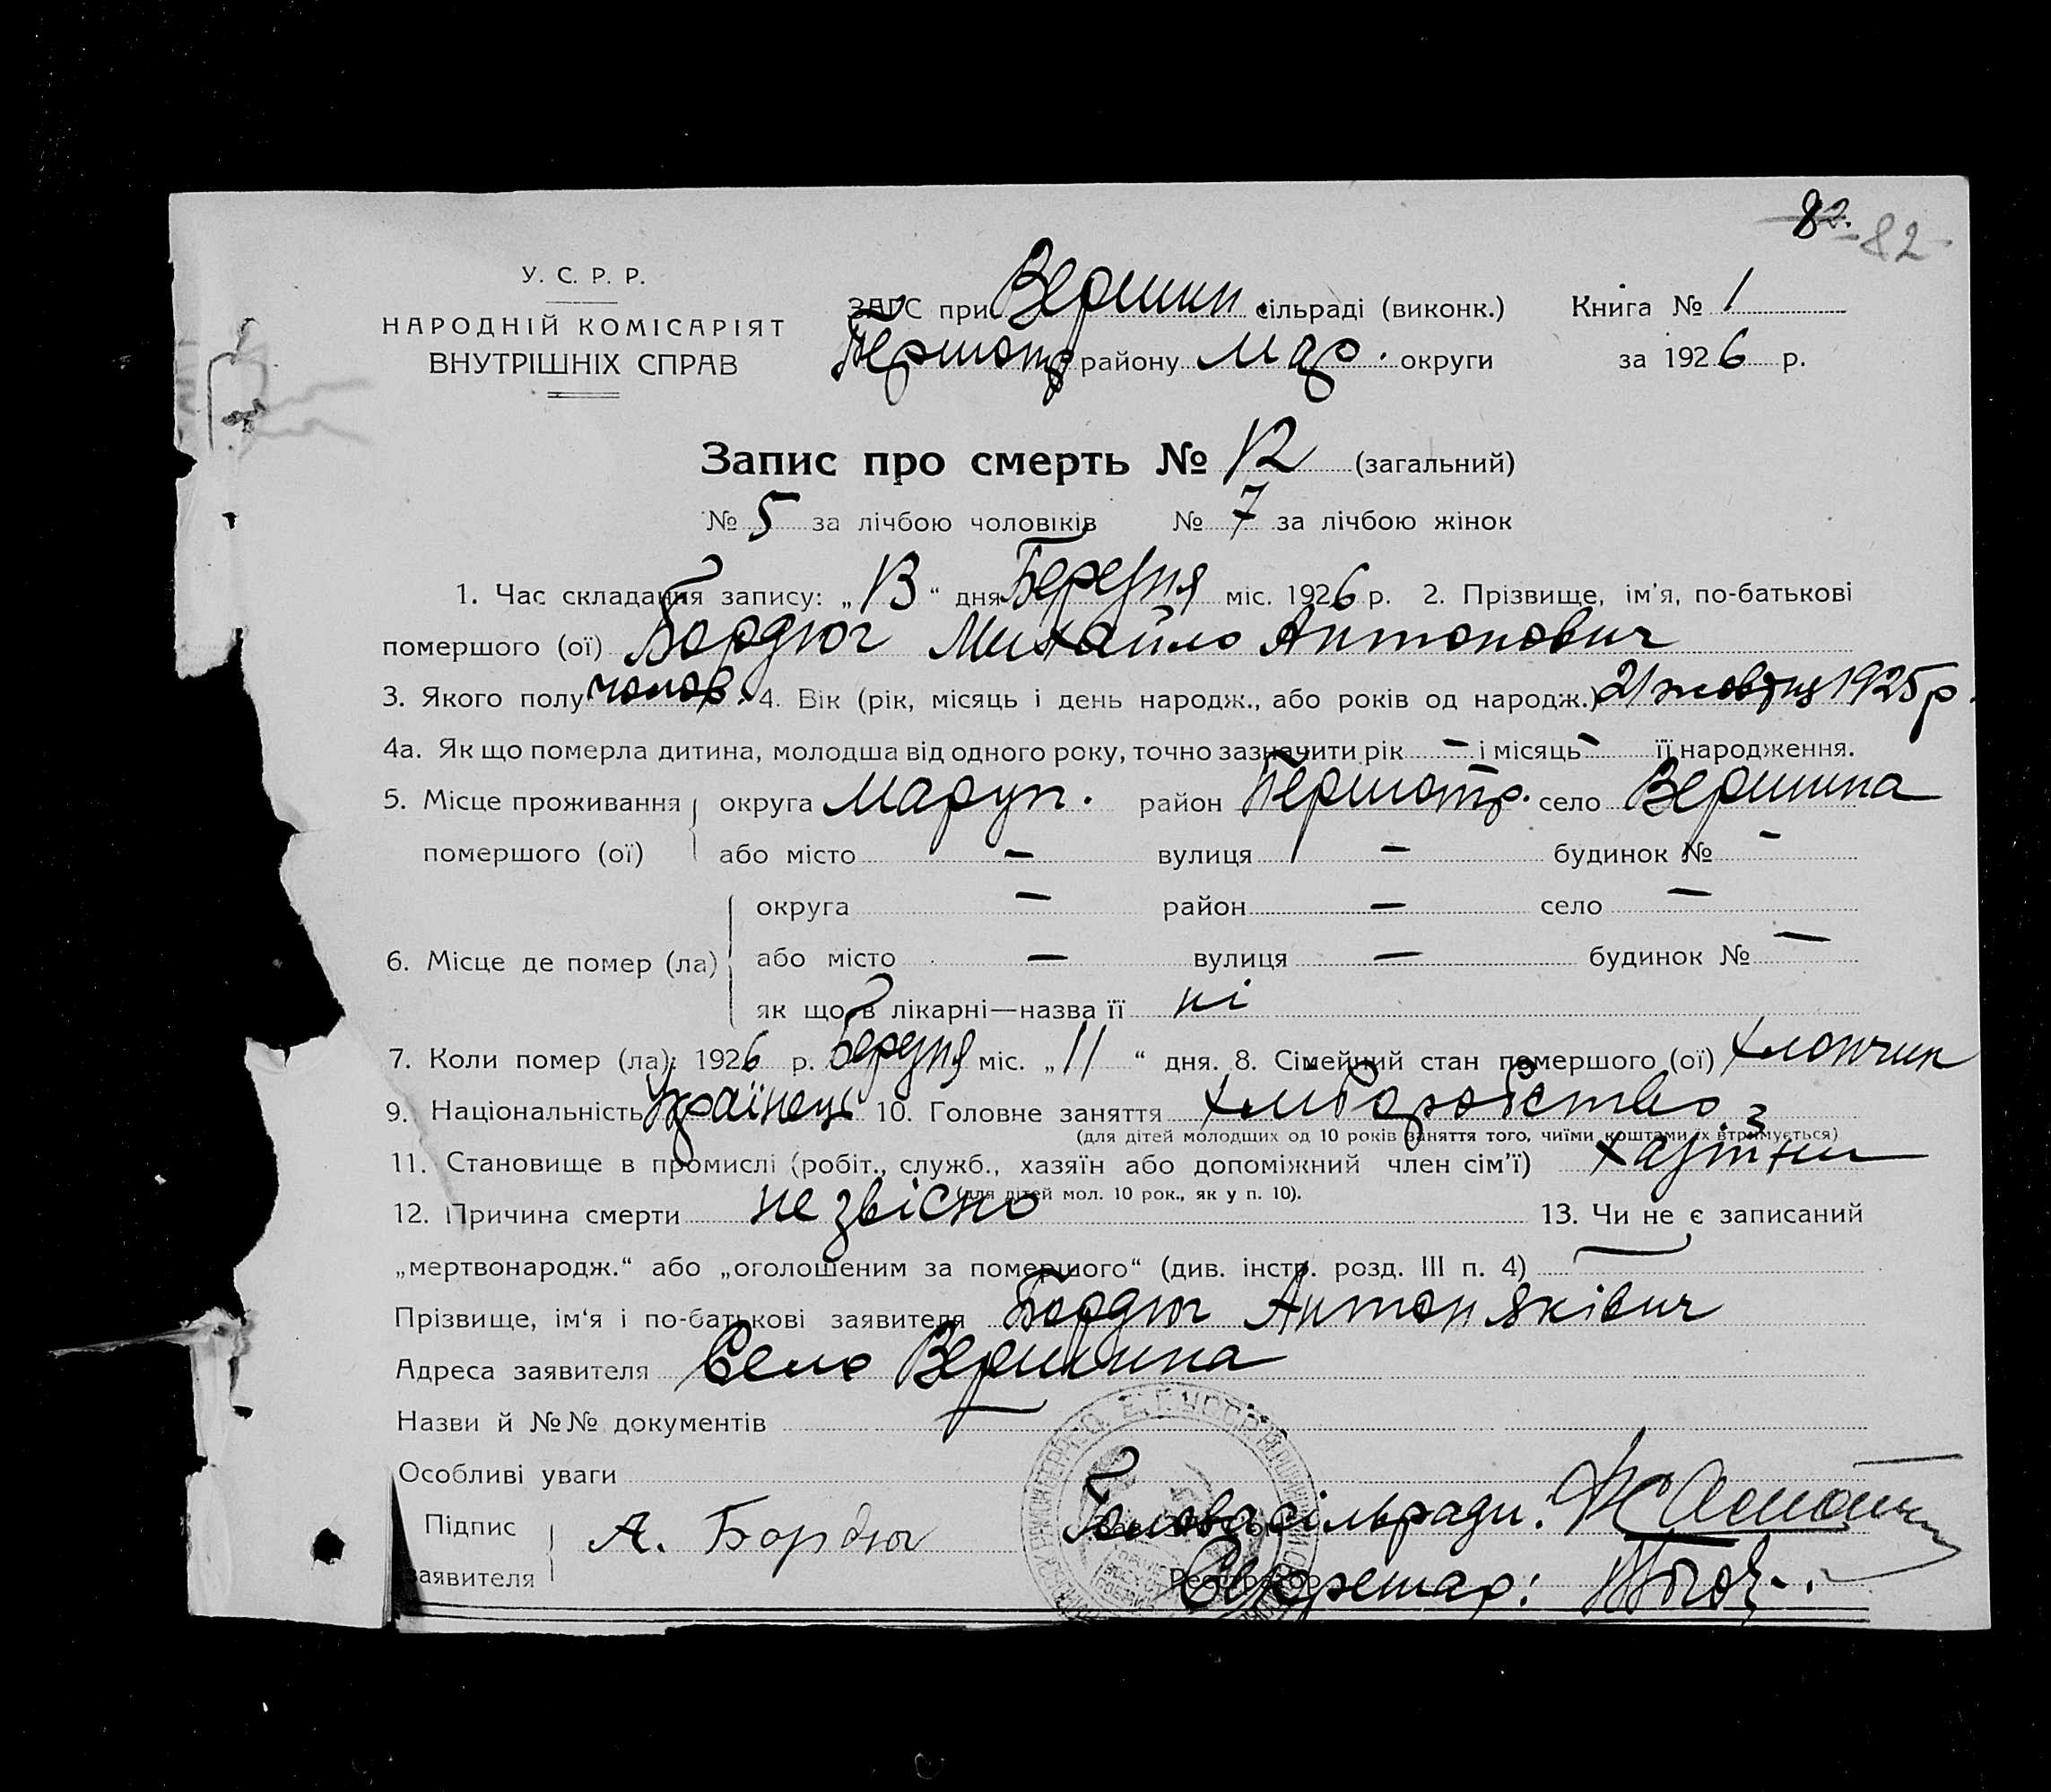 82. 82
У. С. Р. Р.
НАРОДНІЙ КОМІСАРІЯТ
ВНУТРІШНІХ СПРАВ
ЗАГС при Вершин сільраді (виконк.) Книга № 1
району Мар. округи за 1926 р.
Запис про смерть № 12 (загальний)
№ 5 за лічбою чоловіків № 7 за лічбою жінок
1. Час складання запису: „13“ дня Березня міс. 1926 р. 2. Прізвище, ім'я, по-батькові
помершого (ої) Бордюг Михайло Антонович
3. Якого полу чолов. 4. Вік (рік, місяць і день народж., або років од народж.) 21 жовтця 1925 р.
4а. Як що померла дитина, молодша від одного року, точно зазначити рік – і місяць – її народження.
5. Місце проживання округа Маруп. район Першотр. село Вершина
помершого (ої) або місто – вулиця – будинок № –
округа – район – село –
6. Місце де помер (ла) або місто – вулиця – будинок № –
як що в лікарні—назва її ні
7. Коли помер (ла): 1926 р. Березня міс. „11“ дня. 8. Сімейний стан помершого (ої) хлопчик
9. Національність Українець 10. Головне заняття хліборобство
(для дітей молодщих од 10 років заняття того, чиїми коштами їх втримується)
11. Становище в промислі (робіт., служб., хазяїн або допоміжний член сім'ї)
(для дітей мол. 10 рок., як у п. 10).
12. Причина смерти не звісно 13. Чи не є записаний
„мертвонародж.“ або „оголошеним за помершого“ (див. інстр. розд. III п. 4) –
Прізвище, ім'я і по-батькові заявителя Бордюг Антон Якієвич
Адреса заявителя Село Вершина
Назви й №№ документів –
Особливі уваги
Підпис заявителя А. Бордюг
Голова сільради:
Секретар: